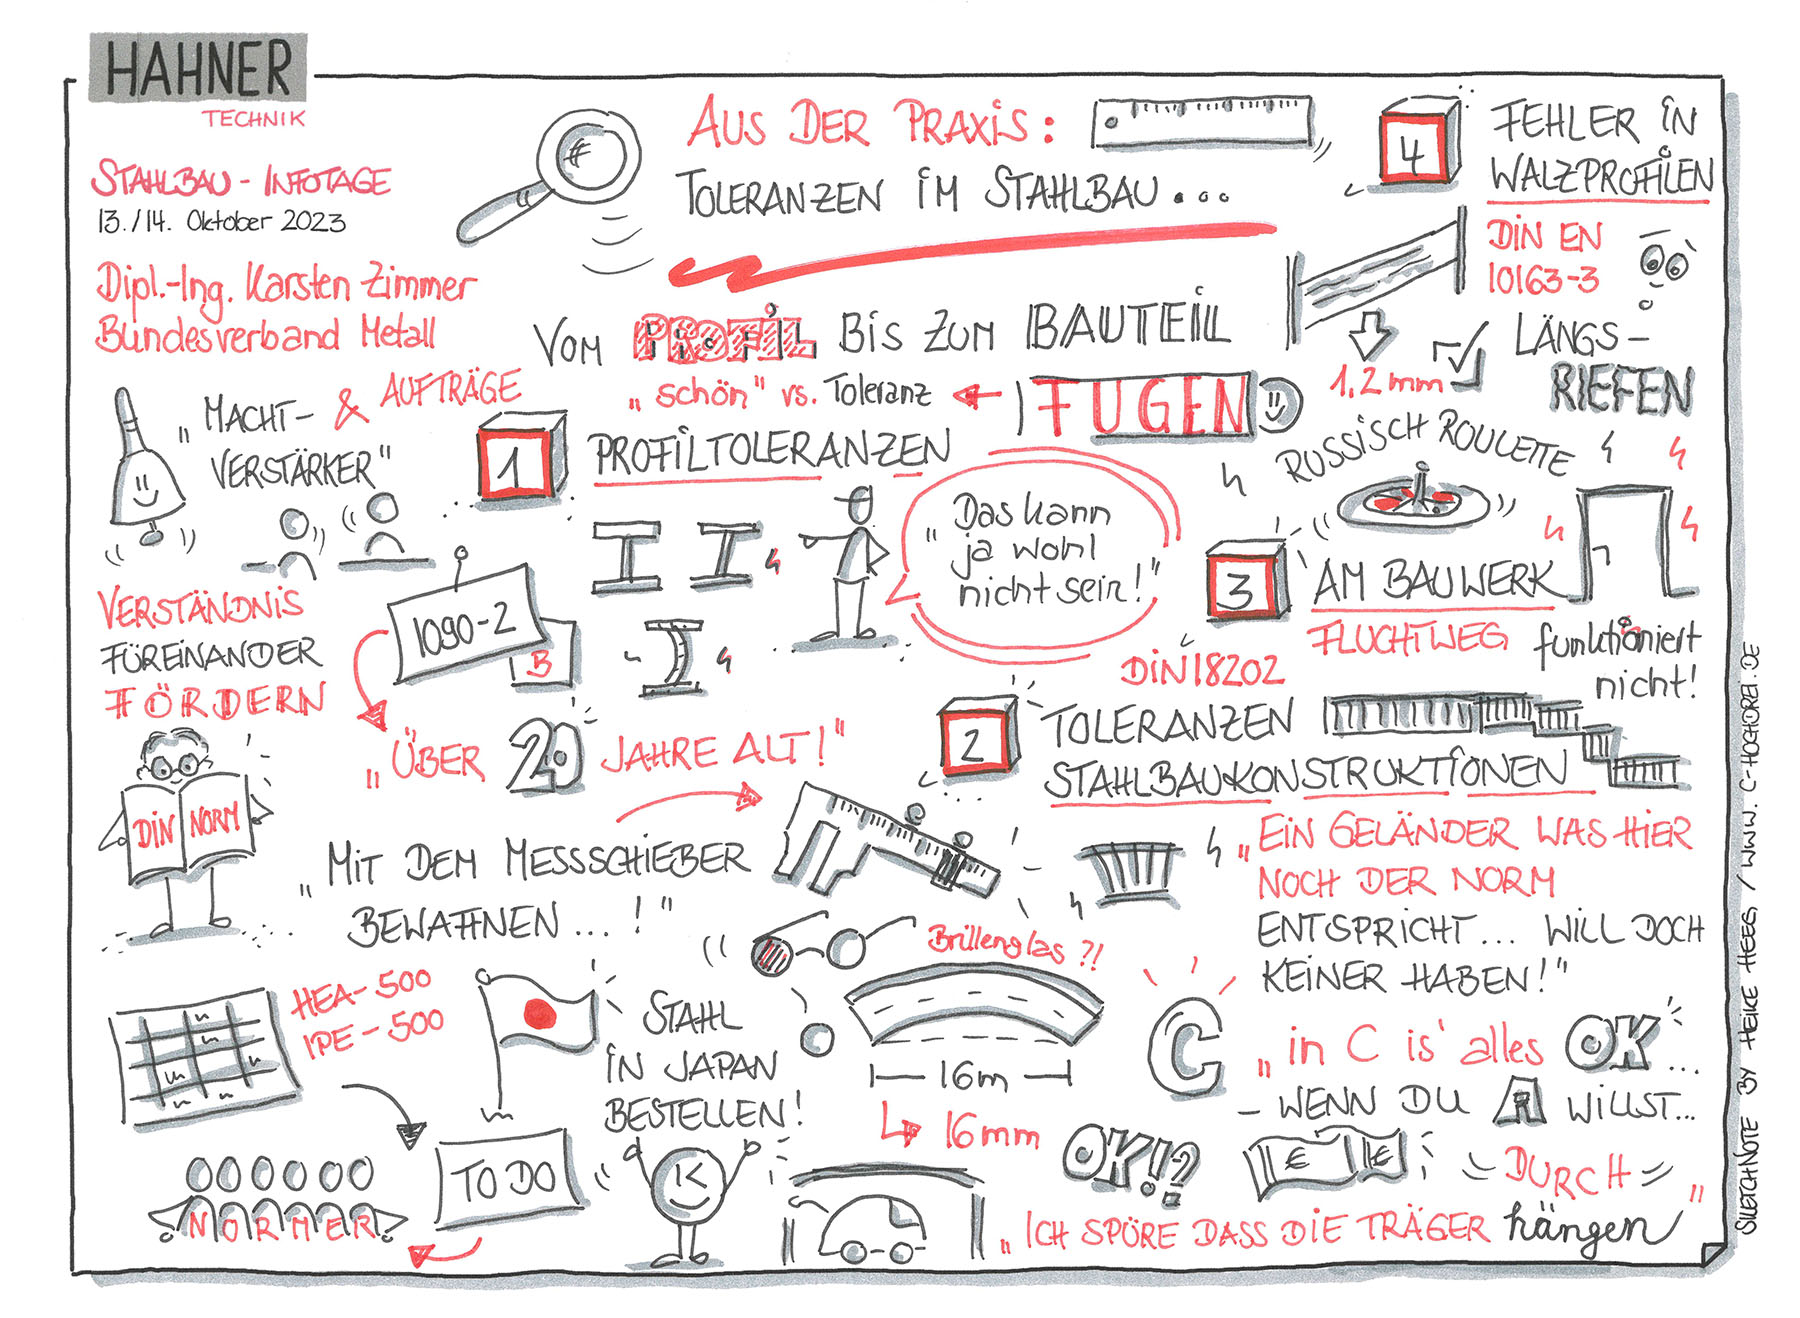 HAHNER
TECHNIK
STAHLBAU - INFOTAGE
13./14. Oktober 2023
Dipl.-Ing. Karsten Zimmer
Bundesverband Metall
AUS DER PRAXIS:
TOLERANZEN IM STAHLBAU...
VOM PROFIL BIS ZUM BAUTEIL
„schön" vs. Toleranz
FUGEN
„MACHT-
VERSTÄRKER"
& AUFTRÄGE
VERSTÄNDNIS
FÜREINANDER
FÖRDERN
DIN NORM
1
PROFILTOLERANZEN
„Das kann
ja wohl
nicht sein!"
1090-2
B
„ÜBER 20 JAHRE ALT!"
„MIT DEM MESSSCHIEBER
BEWAFFNEN...!"
HEA-500
IPE-500
STAHL
IN JAPAN
BESTELLEN!
TO DO
NORMER
2
TOLERANZEN
STAHLBAUKONSTRUKTIONEN
„EIN GELÄNDER WAS HIER
NOCH DER NORM
ENTSPRICHT... WILL DOCH
KEINER HABEN!"
Brillenglas?!
16m
16mm
OK!?
C
„in C is' alles OK...
- WENN DU A WILLST...
€ €
„ICH SPÜRE DASS DIE TRÄGER DURCH
hängen"
3
AM BAUWERK
DIN 18202
FLUCHTWEG funktioniert
nicht!
RUSSISCH ROULETTE
4
FEHLER IN
WALZPROFILEN
DIN EN
10163-3
1,2mm
LÄNGS-
RIEFEN
SKETCHNOTE BY HEIKE HEEG / WWW.C-HOCHDREI.DE